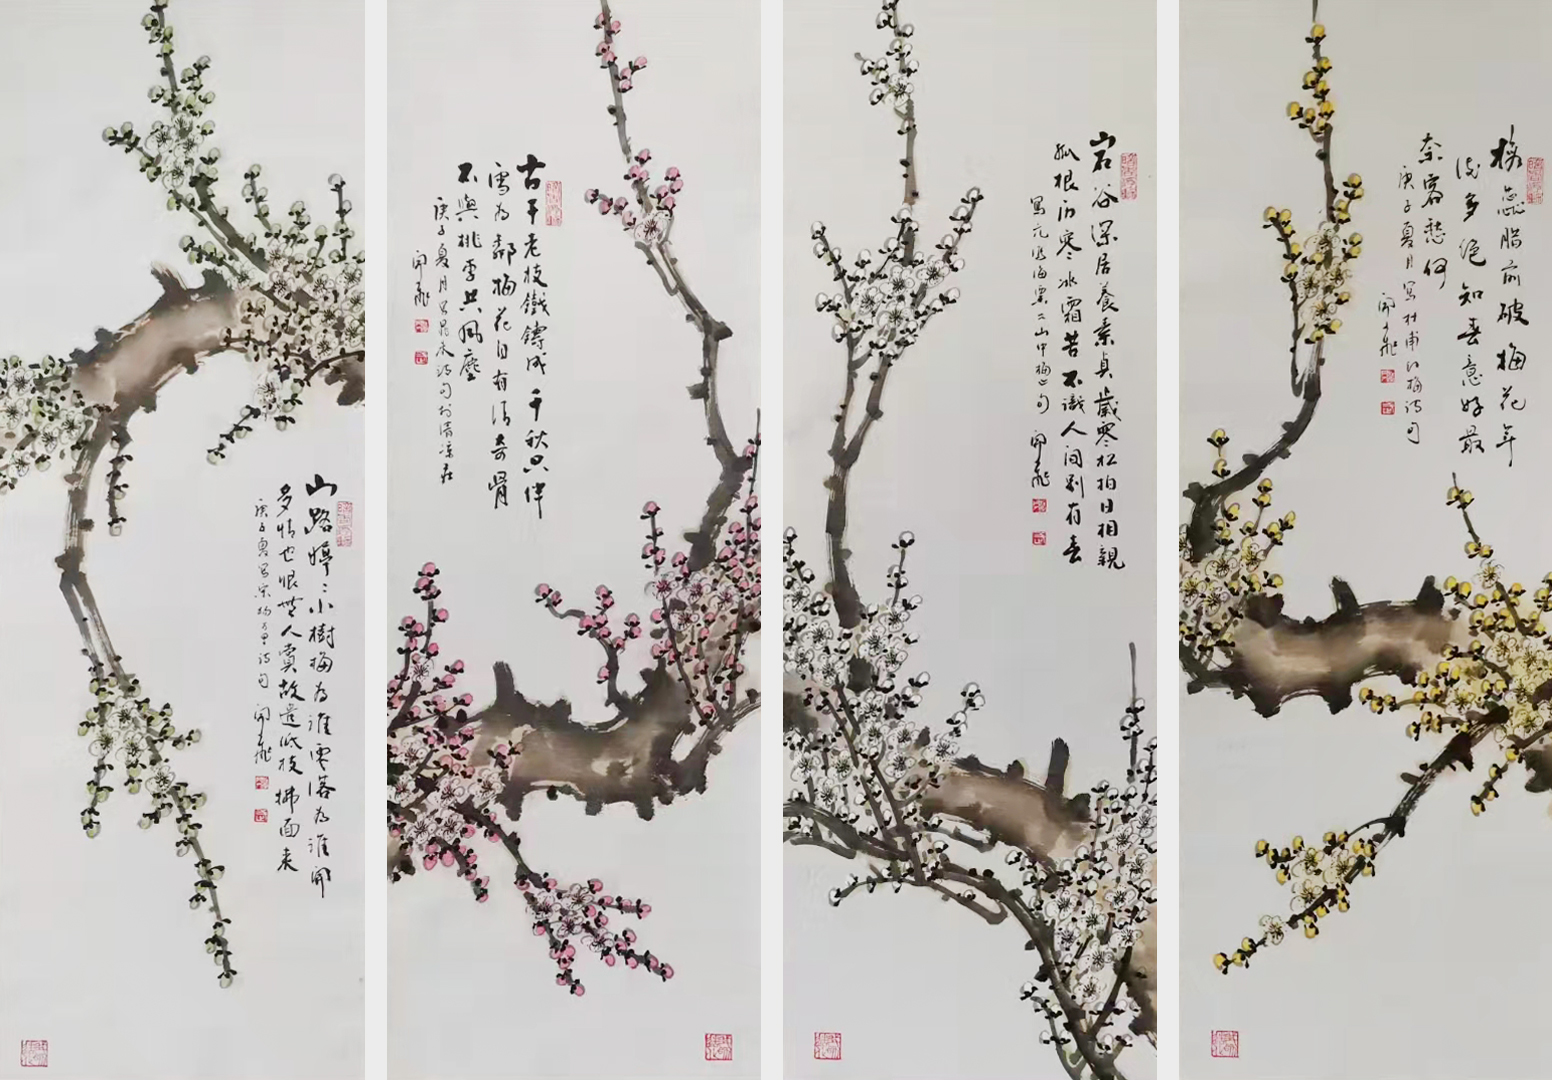 山路婷〻小樹梅為誰零落為誰開
多情也恨無人賞故遣低枝拂面來
庚子夏寫宋楊万里詩句 開飛
古干老枝鐵鑄成千秋只伴
雪為鄰梅花自有清奇骨
不與桃李共風塵
庚子夏月
開飛
岩谷深居養素貞歲寒松柏日相親
孤根歷寒冰霜苦不識人间別有春
寫元 海粟 山中梅 句 開飛
梅蕊腊前破梅花年
後多绝知春意好最
奈客愁何
庚子夏月寫杜甫江梅詩句
開飛